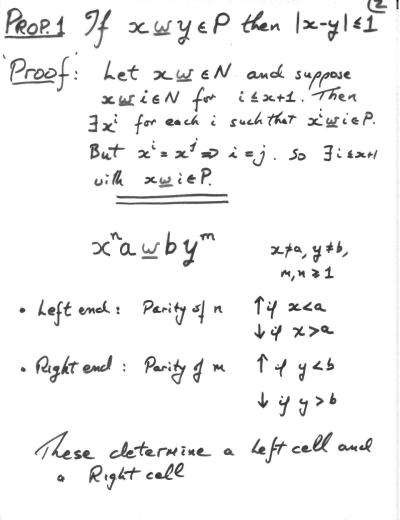 (2
PROP.1 If x w̲ y ∈ P then |x-y| ≤ 1
Proof: Let x w̲ ∈ N and suppose
x w̲ i ∈ N for i ≤ x+1. Then
∃ xⁱ for each i such that xⁱ w̲ i ∈ P.
But xⁱ = xʲ ⇒ i = j. So ∃ i ≤ x+1
with x w̲ i ∈ P.
xⁿ a w̲ b yᵐ x ≠ a, y ≠ b,
m, n ≥ 1
• Left end : Parity of n ↑ if x < a
↓ if x > a
• Right end : Parity of m ↑ if y < b
↓ if y > b
These determine a Left cell and
a Right cell